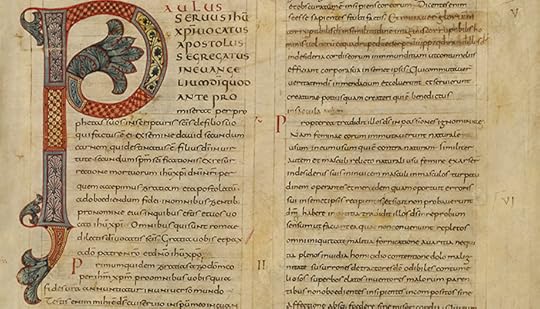 PAULUS
SERVUS IHU
XPI VOCATUS
APOSTOLUS
SEGREGATUS
IN EVANGE
LIUM DI QUOD
ANTE PRO
miserat per pro
phetas suos in scripturis scis de filio suo
qui factus est ex semine dauid secundum
carnem qui destinatus est filius di in uir
tute secundum spm scificationis ex resur
rectione mortuorum ihu xpi dni nri per
quem accepimus gratiam et apostolatum
ad oboediendum fidei in omnibus gentibus
pro nomine eius in quibus estis et uos uoca
ti ihu xpi Omnibus qui sunt romae
dilectis di uocatis scis. Gratia uobis et pax
a do patre nro et dno ihu xpo
Primum quidem gratias ago do meo
per ihm xpm pro omnibus uobis quia
fides uestra annuntiatur in uniuerso mundo
Testis enim mihi est ds cui seruio in spu meo in euan
II
et obscuratum est insipiens cor eorum. Dicentes
V
enim se esse sapientes stulti facti sunt. Et mutauerunt gloriam
incorruptibilis di in similitudinem imaginis corruptibilis ho
minis et uolucrum et quadrupedum et serpentium propter quod tradidit illos ds in
desideria cordis eorum in inmunditiam ut contumeliis
efficiant corpora sua in semetipsis. Qui commutauer
ueritatem di in mendacium et coluerunt et seruierunt
creaturae potius quam creatori qui est benedictus
in saecula
Propterea tradidit illos ds in passiones ignominiae.
Nam feminae eorum inmutauerunt naturale
usum in eum usum qui est contra naturam. Similiter
autem et masculi relicto naturali usu feminae exarser
in desideriis suis in inuicem masculi in masculos turpitu
dinem operantes et mercedem quam oportuit erroris
sui in semetipsis recipientes Et sicut non probauerunt
VI
dm habere in notitia tradidit illos ds in reprobum
sensum ut faciant quae non conueniunt repletos
omni iniquitate malitia fornicatione auaritia nequi
tia plenos inuidia homicidio contentione dolo malig
nitate susurrones detractores do odibiles contume
liosos superbos elatos inuentores malorum paren
tibus non oboedientes insipientes incompositos sine
affectione absque foedere sine